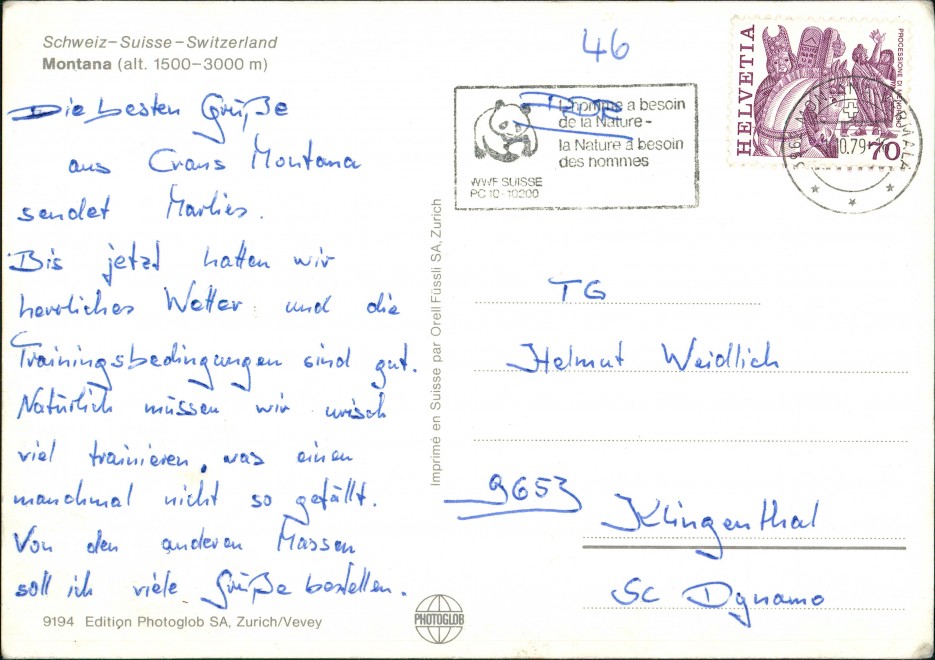 Schweiz–Suisse–Switzerland
Montana (alt. 1500–3000 m)
Die besten Grüße
aus Crans Montana
sendet Marlies.
Bis jetzt hatten wir
herrliches Wetter und die
Trainingsbedingungen sind gut.
Natürlich müssen wir
viel trainieren, was einen
manchmal nicht so gefällt.
Von den anderen Massen
soll ich viele Grüße bestellen.
9194 Edition Photoglob SA, Zurich/Vevey
Imprimé en Suisse par Orell Füssli SA, Zurich
PHOTOGLOB
46
L'homme a besoin
de la Nature –
la Nature a besoin
des hommes
WWF SUISSE
PC 10-10200
HELVETIA
PROCESSIONE DI
70
.10.79
TG
Helmut Weidlich
9653
Klingenthal
SC Dynamo